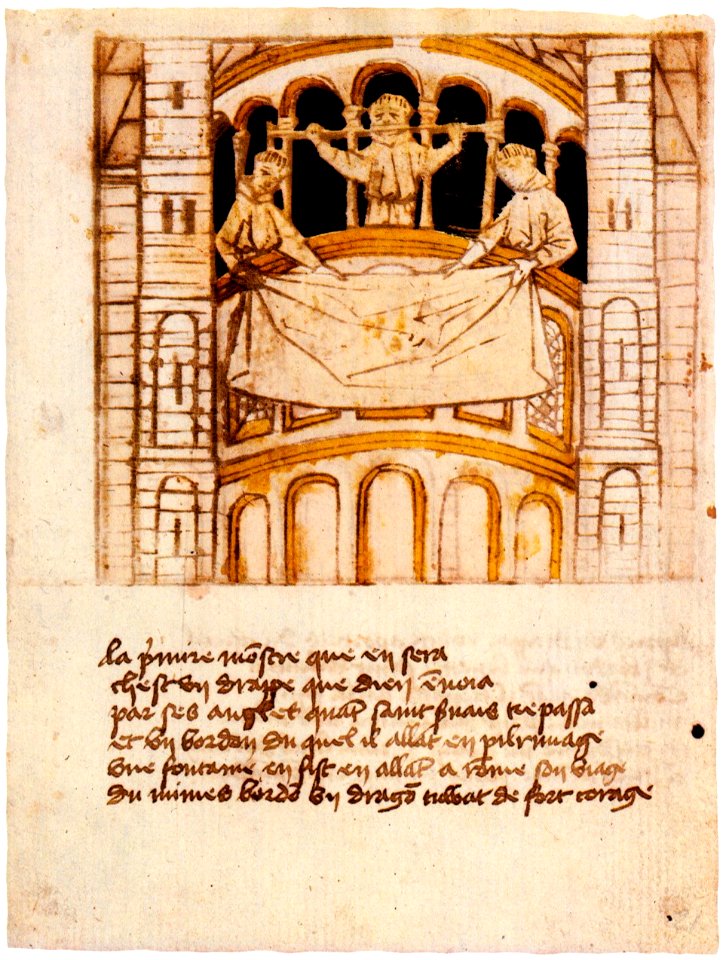 La p̄mire mōstre que en sera
chest vn drappe que dieu ēuoia
par ses angles quāt saint s̄uais trepassa
et vn bordon du quel il allat en pilrimage
vne fontaine en fist en allāt a rōme son viage
du mimes bordō vn dragō tuwat de fort corage